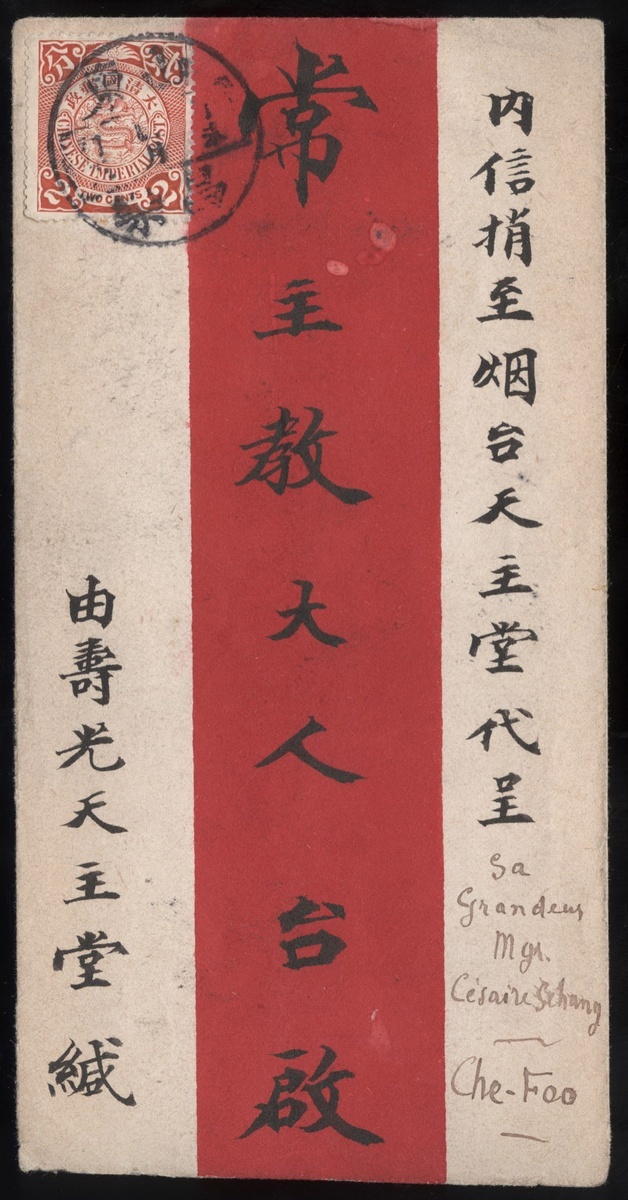 內信捎至烟台天主堂代呈
Sa
Grandeur
Mgr.
Césaire Schang
Che-Foo
常主教大人台啟
由壽光天主堂緘
大清國郵政
CHINESE IMPERIAL POST
2 TWO CENTS 2